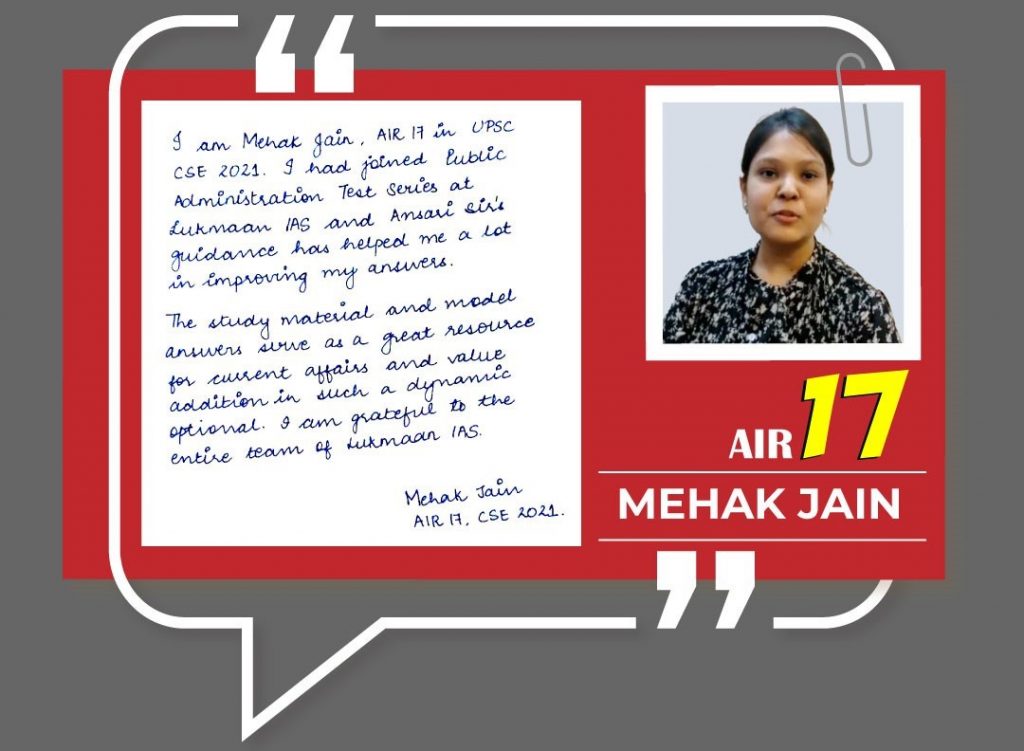 I am Mehak Jain, AIR 17 in UPSC
CSE 2021. I had joined Public
Administration Test Series at
Lukmaan IAS and Ansari Sir's
guidance has helped me a lot
in improving my answers.
The study material and model
answers serve as a great resource
for current affairs and value
addition in such a dynamic
optional. I am grateful to the
entire team of Lukmaan IAS.
Mehak Jain
AIR 17, CSE 2021.
AIR 17
MEHAK JAIN